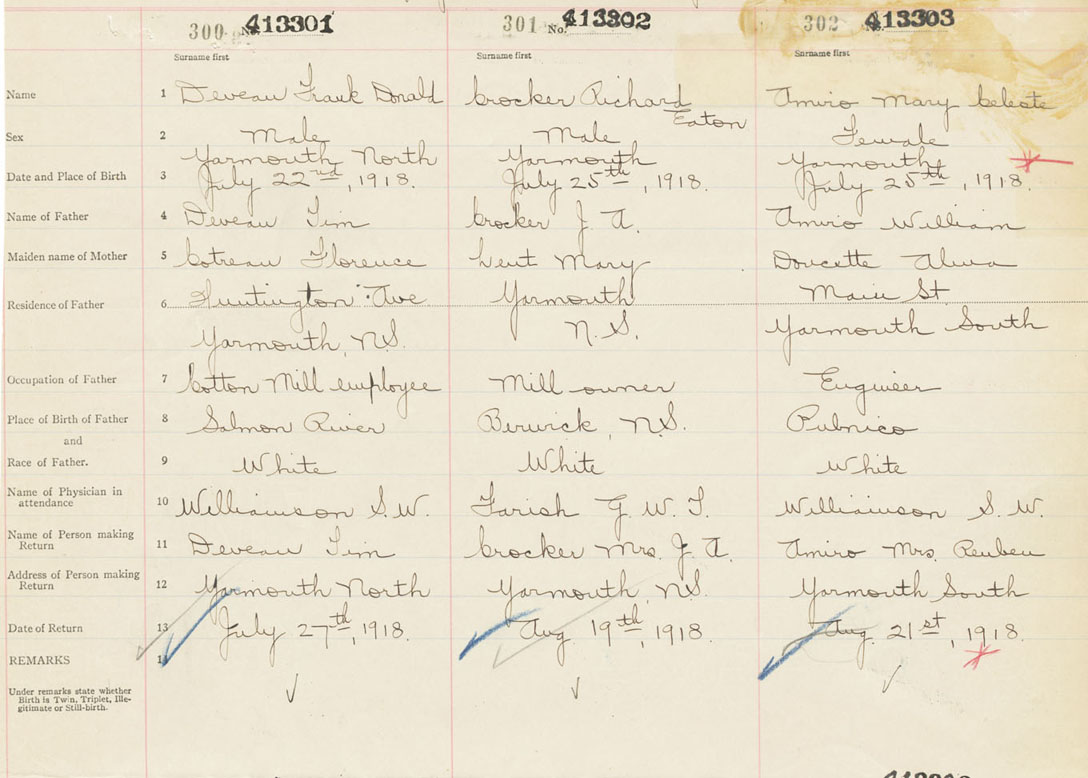 300 No. 413301 301 No. 413302 302 No. 413303
Surname first Surname first Surname first
Name 1 Deveau Frank Donald Crocker Richard Eaton Amiro Mary Celeste
Sex 2 Male Male Female
Yarmouth North Yarmouth Yarmouth
Date and Place of Birth 3 July 22nd, 1918. July 25th, 1918. July 25th, 1918.
Name of Father 4 Deveau Tim Crocker J. A. Amiro William
Maiden name of Mother 5 Cotreau Florence Lent Mary Doucette Alma
Residence of Father 6 Huntington Ave Yarmouth Main St.
Yarmouth, N.S. N.S. Yarmouth South
Occupation of Father 7 Cotton Mill employee Mill owner Engineer
Place of Birth of Father 8 Salmon River Berwick, N.S. Pubnico
and
Race of Father. 9 White White White
Name of Physician in
attendance 10 Williamson S.W. Farish G. W. T. Williamson S. W.
Name of Person making
Return 11 Deveau Tim Crocker Mrs. J. A. Amiro Mrs. Reuben
Address of Person making
Return 12 Yarmouth North Yarmouth, N.S. Yarmouth South
Date of Return 13 July 27th, 1918. Aug 19th, 1918. Aug. 21st, 1918.
REMARKS 14
Under remarks state whether
Birth is Twin, Triplet, Ille-
gitimate or Still-birth.